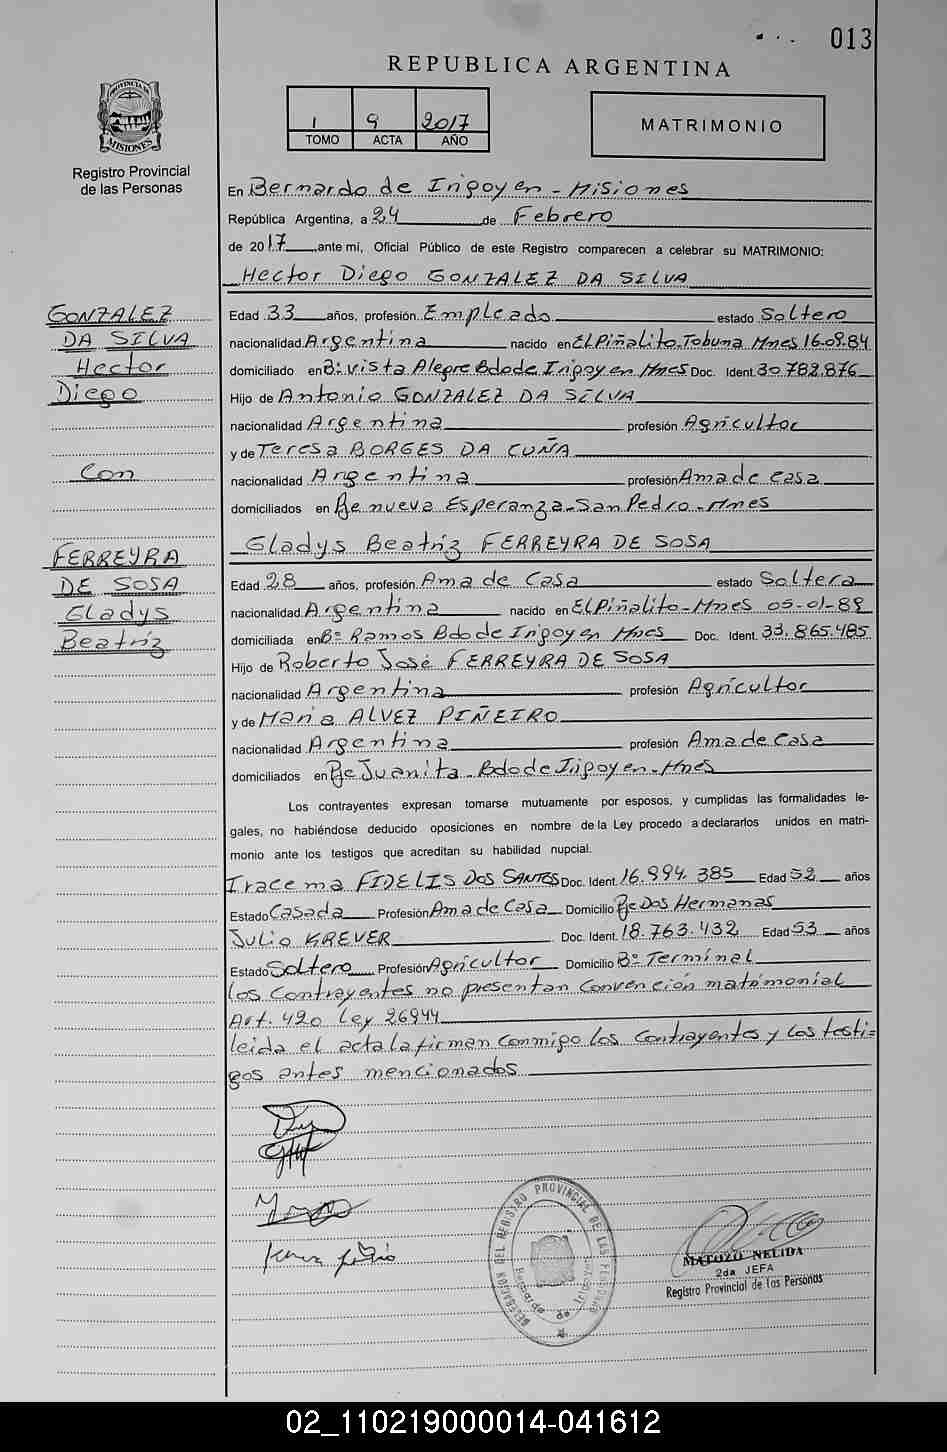 013
REPUBLICA ARGENTINA
PROVINCIA DE
MISIONES
Registro Provincial
de las Personas
1 9 2017
TOMO ACTA AÑO
MATRIMONIO
En Bernardo de Irigoyen - Misiones
República Argentina, a 24 de Febrero
de 2017 ante mí, Oficial Público de este Registro comparecen a celebrar su MATRIMONIO:
Hector Diego GONZALEZ DA SILVA
GONZALEZ
DA SILVA
Hector
Diego
Con
FERREYRA
DE SOSA
Gladys
Beatriz
Edad 33 años, profesión Empleado estado Soltero
nacionalidad Argentina nacido en El Piñalito-Tobuna Mnes 16-09-84
domiciliado en B: vista Alegre Bdo de Irigoyen Mnes Doc. Ident. 30.782.876
Hijo de Antonio GONZALEZ DA SILVA
nacionalidad Argentina profesión Agricultor
y de Teresa BORGES DA CUÑA
nacionalidad Argentina profesión Ama de casa
domiciliados en Pje nueva Esperanza - San Pedro - Mnes
Gladys Beatriz FERREYRA DE SOSA
Edad 28 años, profesión Ama de Casa estado Soltera
nacionalidad Argentina nacido en El Piñalito - Mnes 05-01-89
domiciliada en B: Ramos Bdo de Irigoyen Mnes Doc. Ident. 33.865.485
Hijo de Roberto José FERREYRA DE SOSA
nacionalidad Argentina profesión Agricultor
y de Maria ALVEZ PIÑEIRO
nacionalidad Argentina profesión Ama de Casa
domiciliados en Pje Juanita - Bdo de Irigoyen - Mnes
Los contrayentes expresan tomarse mutuamente por esposos, y cumplidas las formalidades le-
gales, no habiéndose deducido oposiciones en nombre de la Ley procedo a declararlos unidos en matri-
monio ante los testigos que acreditan su habilidad nupcial.
Iracema FIDELIS DOS SANTOS Doc. Ident. 16.994.385 Edad 52 años
Estado Casada Profesión Ama de Casa Domicilio Pje Dos Hermanas
Julio KREVER Doc. Ident. 18.763.432 Edad 53 años
Estado Soltero Profesión Agricultor Domicilio B: Terminal
los Contrayentes no presentan Convención matrimonial
Art. 420 ley 26944
leida el acta la firman conmigo los Contrayentes y los testi=
gos antes mencionados
DELEGACION DEL REGISTRO PROVINCIAL DE LAS PERSONAS
Bernardo de Irigoyen
MATOZO NELIDA
2da JEFA
Registro Provincial de las Personas
02_110219000014-041612